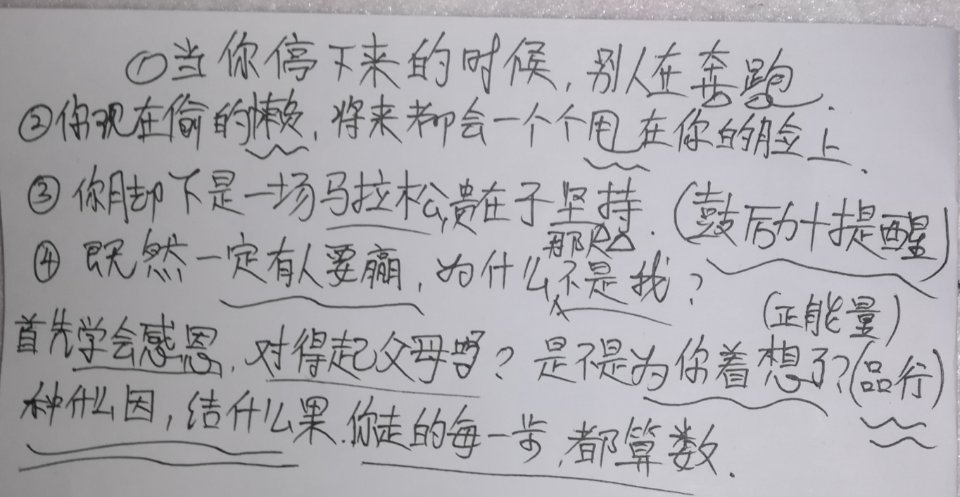 ①当你停下来的时候,别人在奔跑.
②你现在偷的懒,将来都会一个个甩在你的脸上.
③你脚下是一场马拉松,贵在于坚持.(鼓励+提醒)
④既然一定有人要赢,为什么那只不是我?
(正能量)
首先学会感恩,对得起父母吗?是不是为你着想了?(品行)
种什么因,结什么果.你走的每一步,都算数.